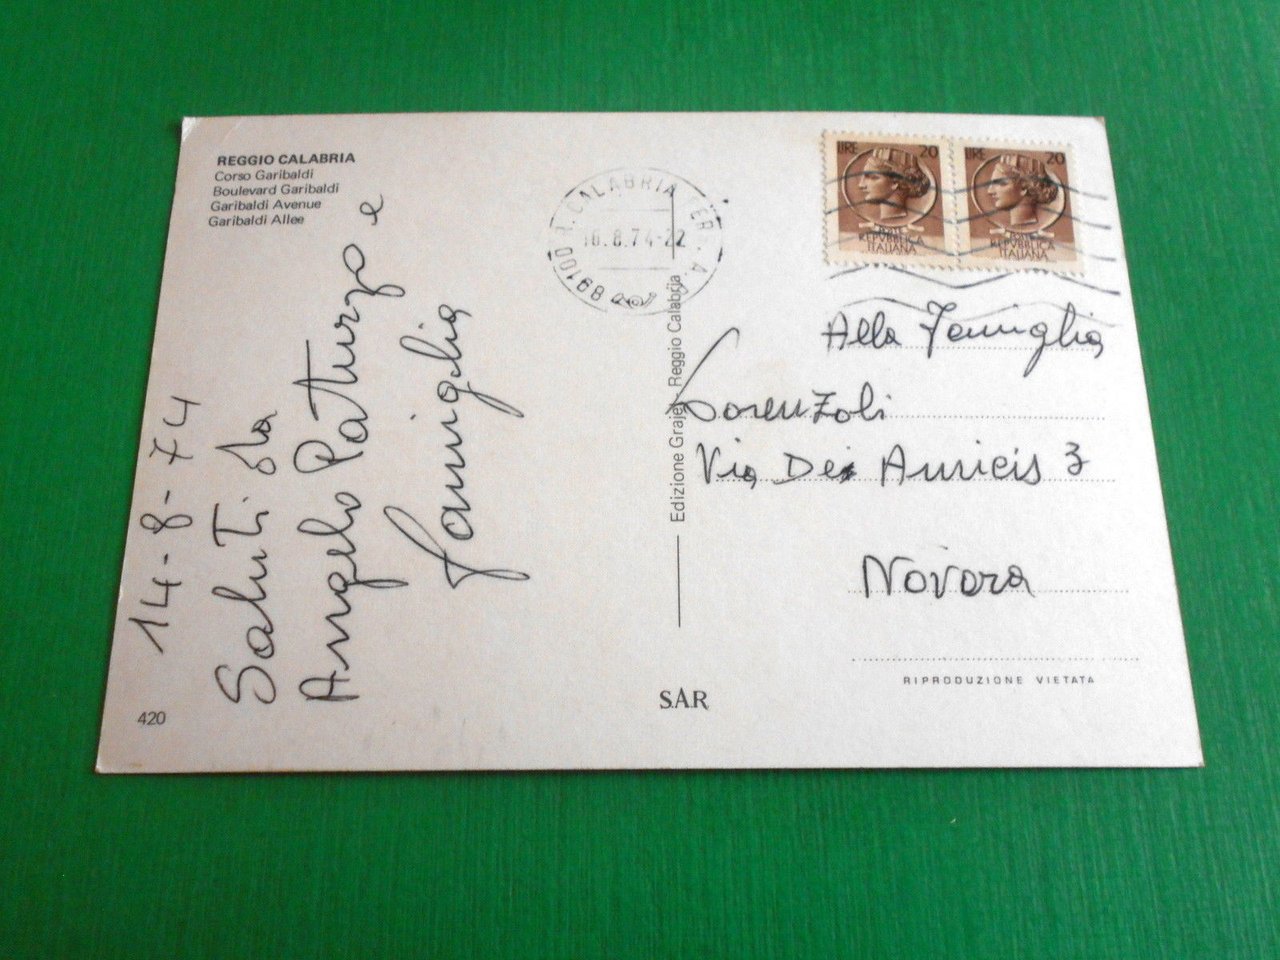 REGGIO CALABRIA
Corso Garibaldi
Boulevard Garibaldi
Garibaldi Avenue
Garibaldi Allee
14-8-74
Saluti da
Angelo Patturzo e
famiglia
420
89100 R. CALABRIA FERR. A.
16.8.74-22
Edizione Grajel - Reggio Calabria
SAR
LIRE 20
POSTE
REPVBBLICA
ITALIANA
LIRE 20
POSTE
REPVBBLICA
ITALIANA
Alla Famiglia
Lorenzoli
Via Dei
3
Novara
RIPRODUZIONE VIETATA